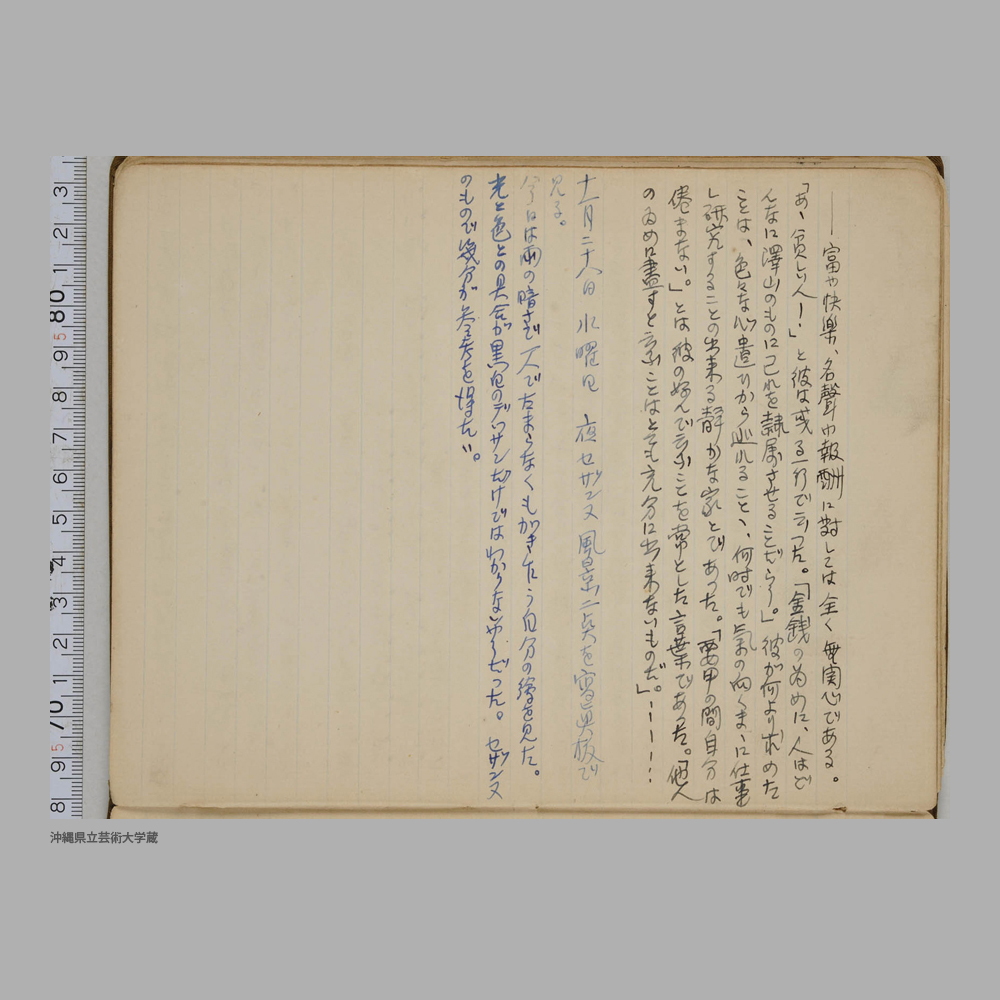 ――富や快樂、名聲や報酬に對しては全く無関心である。
「あゝ貧しい人！」と彼は或る所で云つた。「金銭の為めに、人はど
んなに澤山のものに己れを隷属させることだらう。」彼が何より求めた
ことは、色々な心遣ひから逃れること、何時でも氣の向くまゝに仕事
し研究することの出来る靜かな家とであつた。「要の間自分は
倦まない。」とは彼の好んで云ふことを常とした言葉であつた。「他人
の為めに盡すと云ふことはとても充分に出来ないものだ。」――……
十一月二十八日 水曜日 夜セザンヌ風景二点を寫真板で
見る。
今日は雨の暗さで一人でたまらなくもがきたう自分の繪を見た。
光と色との具合が黒白のデッサンだけではわからないやうだつた。セザンヌ
のもので幾分が を得たい。
3 2 1 80 9 8 7 6 5 4 3 2 1 70 9 8
5 5
沖縄県立芸術大学蔵